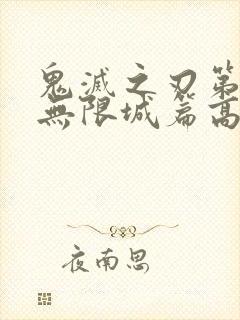 鬼滅之刃第
無限城篇高
夜南思